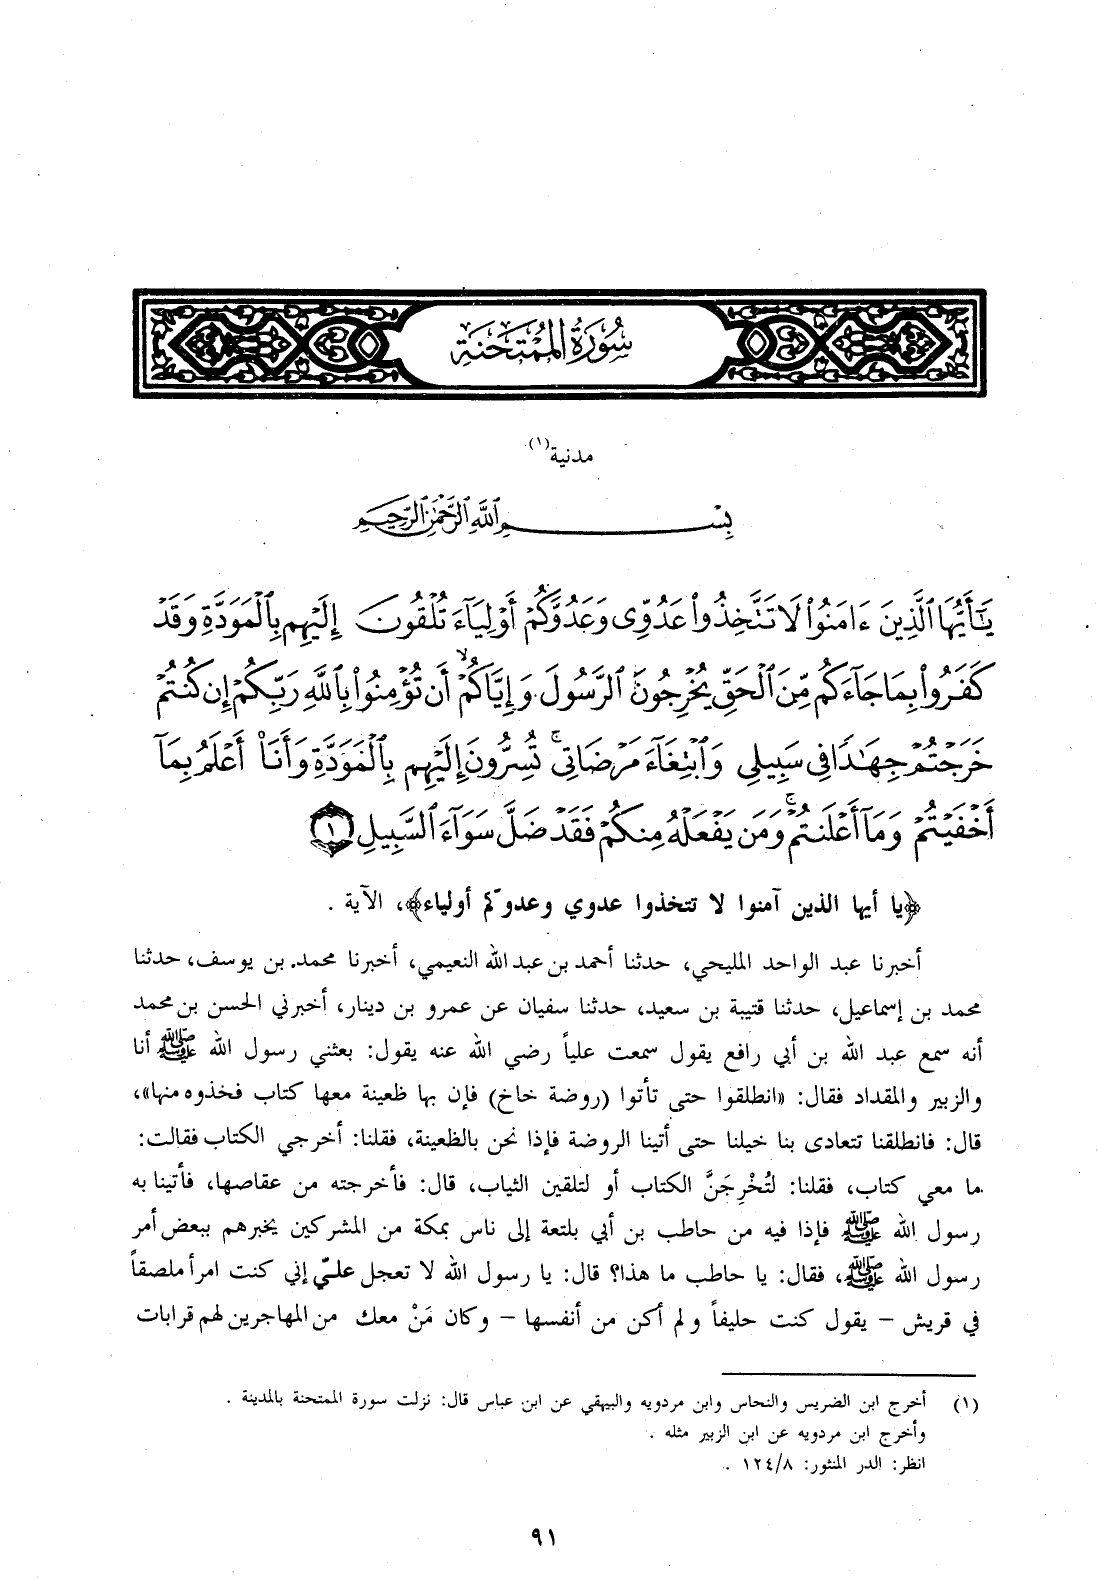 سُورَةُ المُمْتَحنَة
مدنية(١)
بِسْمِ ٱللَّهِ ٱلرَّحْمَٰنِ ٱلرَّحِيمِ
يَٰٓأَيُّهَا ٱلَّذِينَ ءَامَنُوا۟ لَا تَتَّخِذُوا۟ عَدُوِّى وَعَدُوَّكُمْ أَوْلِيَآءَ تُلْقُونَ إِلَيْهِم بِٱلْمَوَدَّةِ وَقَدْ
كَفَرُوا۟ بِمَا جَآءَكُم مِّنَ ٱلْحَقِّ يُخْرِجُونَ ٱلرَّسُولَ وَإِيَّاكُمْ ۙ أَن تُؤْمِنُوا۟ بِٱللَّهِ رَبِّكُمْ إِن كُنتُمْ
خَرَجْتُمْ جِهَٰدًا فِى سَبِيلِى وَٱبْتِغَآءَ مَرْضَاتِى ۚ تُسِرُّونَ إِلَيْهِم بِٱلْمَوَدَّةِ وَأَنَا۠ أَعْلَمُ بِمَآ
أَخْفَيْتُمْ وَمَآ أَعْلَنتُمْ ۚ وَمَن يَفْعَلْهُ مِنكُمْ فَقَدْ ضَلَّ سَوَآءَ ٱلسَّبِيلِ ١
﴿يا أيها الذين آمنوا لا تتخذوا عدوي وعدوّكم أولياء﴾، الآية .
أخبرنا عبد الواحد المليحي، حدثنا أحمد بن عبد الله النعيمي، أخبرنا محمد. بن يوسف، حدثنا
محمد بن إسماعيل، حدثنا قتيبة بن سعيد، حدثنا سفيان عن عمرو بن دينار، أخبرني الحسن بن محمد
أنه سمع عبد الله بن أبي رافع يقول سمعت علياً رضي الله عنه يقول: بعثني رسول الله ﷺ أنا
والزبير والمقداد فقال: «انطلقوا حتى تأتوا (روضة خاخ) فإن بها ظعينة معها كتاب فخذوه منها»،
قال: فانطلقنا تتعادى بنا خيلنا حتى أتينا الروضة فإذا نحن بالظعينة، فقلنا: أخرجي الكتاب فقالت:
ما معي كتاب، فقلنا: لتُخْرِجَنَّ الكتاب أو لتلقين الثياب، قال: فأخرجته من عقاصها، فأتينا به
رسول الله ﷺ فإذا فيه من حاطب بن أبي بلتعة إلى ناس بمكة من المشركين يخبرهم ببعض أمر
رسول الله ﷺ، فقال: يا حاطب ما هذا؟ قال: يا رسول الله لا تعجل عليّ إني كنت امرأ ملصقاً
في قريش – يقول كنت حليفاً ولم أكن من أنفسها – وكان مَنْ معك من المهاجرين لهم قرابات
(١) أخرج ابن الضريس والنحاس وابن مردويه والبيهقي عن ابن عباس قال: نزلت سورة الممتحنة بالمدينة .
وأخرج ابن مردويه عن ابن الزبير مثله .
انظر: الدر المنثور: ١٢٤/٨ .
٩١